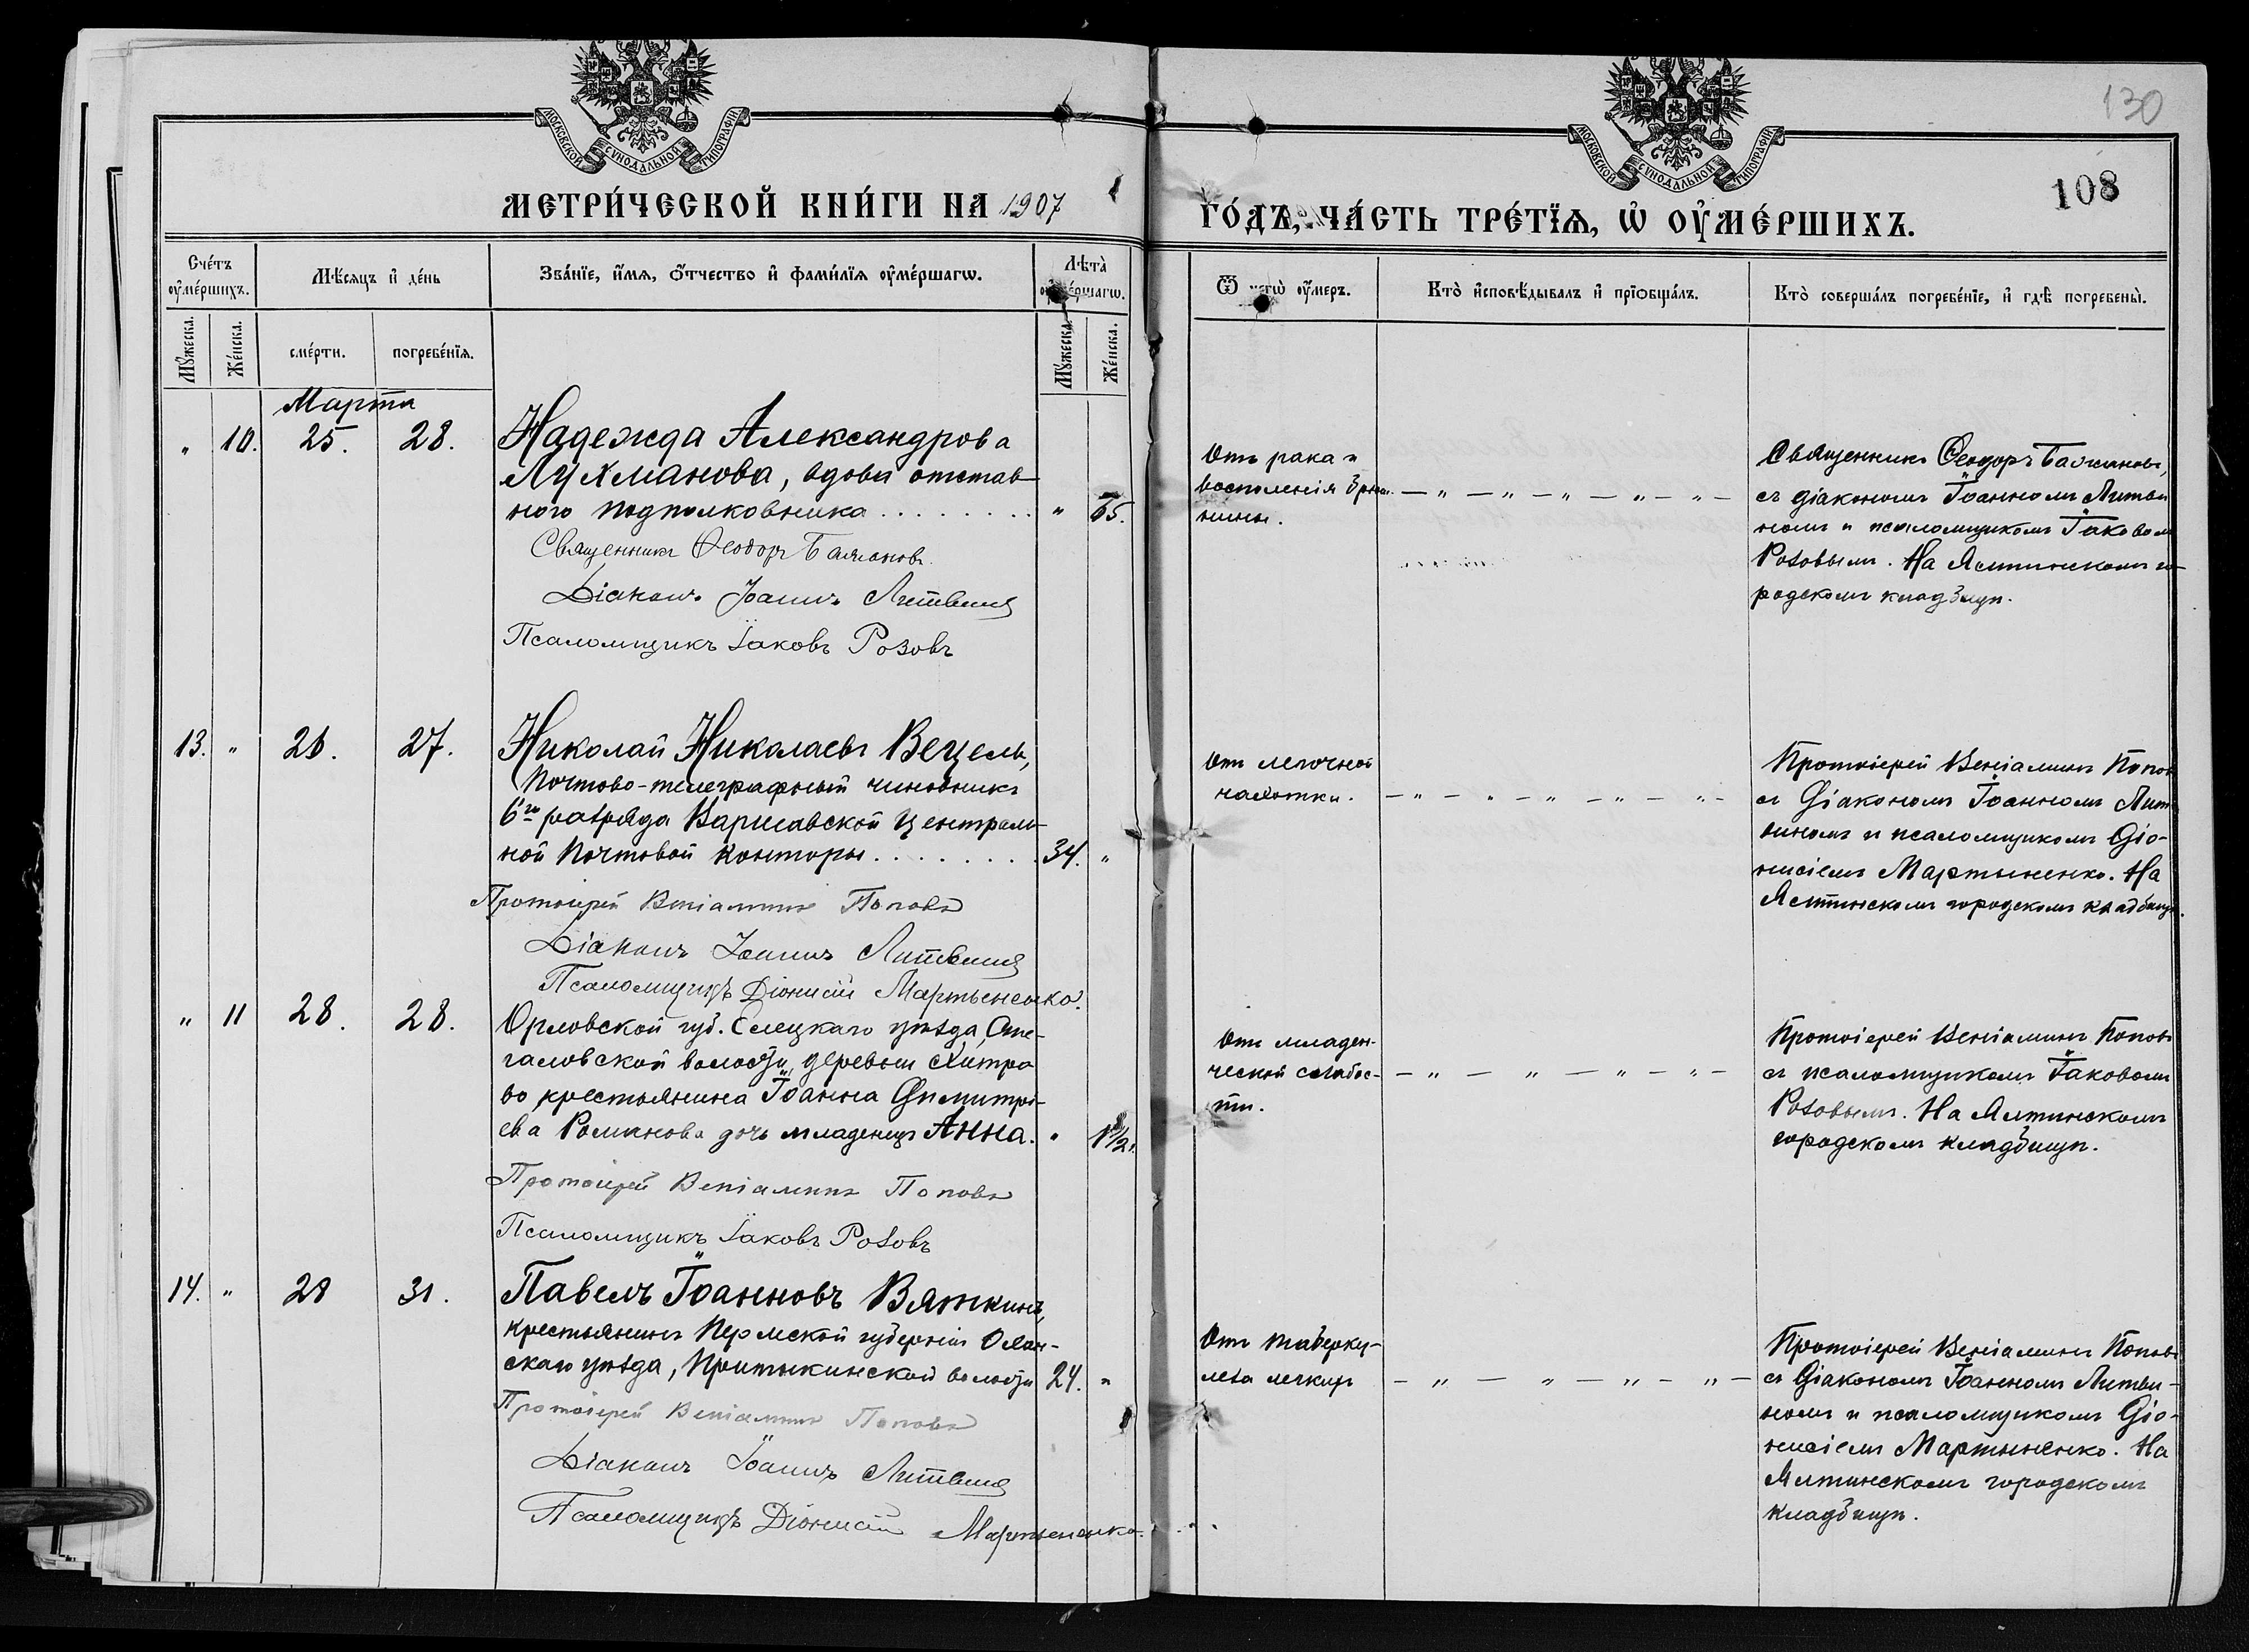 130
108
МОСКОВСКОЙ СѴНОДАЛЬНОЙ ТИПОГРАФІИ
МОСКОВСКОЙ СѴНОДАЛЬНОЙ ТИПОГРАФІИ
МЕТРИ́ЧЕСКОЙ КНИ́ГИ НА 1907
ГО́ДЪ, ЧА́СТЬ ТРЕ́ТЇѦ, Ѡ҆ ОУ҆МЕ́РШИХЪ.
Сче́тъ оу҆ме́ршихъ.
Мѣ́сяцъ и҆ де́нь
Зва́нїе, и҆́мѧ, ѻ҆́тчество и҆ фами́лїѧ оу҆ме́ршагѡ.
Лѣ́та̀ оу҆ме́ршагѡ.
Ѿ чегѡ̀ оу҆́меръ.
Кто̀ и҆сповѣ́дывалъ и҆ прїѡбща́лъ.
Кто̀ соверша́лъ погребе́нїе, и҆ гдѣ̀ погребены̀.
Мꙋ́жеска.
Же́нска.
сме́рти.
погребе́нїѧ.
Мꙋ́жеска.
Же́нска.
Марта
" 10. 25. 28.
Надежда Александрова
Лухманова, вдова отстав-
ного подполковника . . . . . . . . " 65.
Священникъ Ѳеодоръ Баженовъ
Діаконъ Іоаннъ Литвинъ
Псаломщикъ Іаковъ Розовъ
Отъ рака и
воспоменія брю-
шины.
— " — " — " — " — " —
Священникъ Ѳеодоръ Баженовъ,
съ діакономъ Іоанномъ Литви
номъ и псаломщикомъ Іаковом
Розовымъ. На Ялтинскомъ го-
родскомъ кладбищѣ.
13. " 26. 27.
Николай Николаевъ Вецель,
Почтово-телеграфный чиновникъ
6го разряда Варшавской Централь-
ной Почтовой конторы . . . . . . . . 34. "
Протоіерей Веніаминъ Поповъ
Діаконъ Іоаннъ Литвинъ
Псаломщикъ Діонисій Мартыненко.
Отъ легочной
чахотки.
— " — " — " — " — " —
Протоіерей Веніаминъ Попов
съ Діакономъ Іоанномъ Лит
виномъ и псаломщикомъ Діо-
нисіемъ Мартыненко. На
Ялтинскомъ городскомъ кладбищѣ.
" 11 28. 28.
Орловской губ. Елецкаго уѣзда, Сте-
галовской волости, деревни Хитро
во, крестьянина Іоанна Димитрі-
ева Романова дочь младенецъ Анна. " 1 1/2.
Протоіерей Веніаминъ Поповъ
Псаломщикъ Іаковъ Розовъ
Отъ младен-
ческой слабос-
ти.
— " — " — " — " —
Протоіерей Веніаминъ Поповъ
съ псаломщикомъ Іаковомъ
Розовымъ. На Ялтинскомъ
городскомъ кладбищѣ.
14. " 28 31.
Павелъ Іоанновъ Вяткинъ,
крестьянинъ Пермской губерніи Охан-
скаго уѣзда, Притыкинской волости 24. "
Протоіерей Веніаминъ Поповъ
Діаконъ Іоаннъ Литвинъ
Псаломщикъ Діонисій Мартыненко.
Отъ таберку-
леза легкихъ
— " — " — " — " —
Протоіерей Веніаминъ Поповъ
съ Діакономъ Іоанномъ Литви-
номъ и псаломщикомъ Діо-
нисіемъ Мартыненко. На
Ялтинскомъ городскомъ
кладбищѣ.